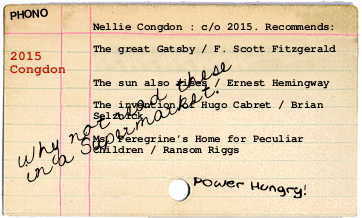 PHONO
Nellie Congdon : c/o 2015. Recommends:
2015
Congdon
The great Gatsby / F. Scott Fitzgerald
The sun also rises / Ernest Hemingway
The invention of Hugo Cabret / Brian
Selznick
Ms. Peregrine's Home for Peculiar
Children / Ransom Riggs
Why not read these
in a Supermarket?
Power Hungry!